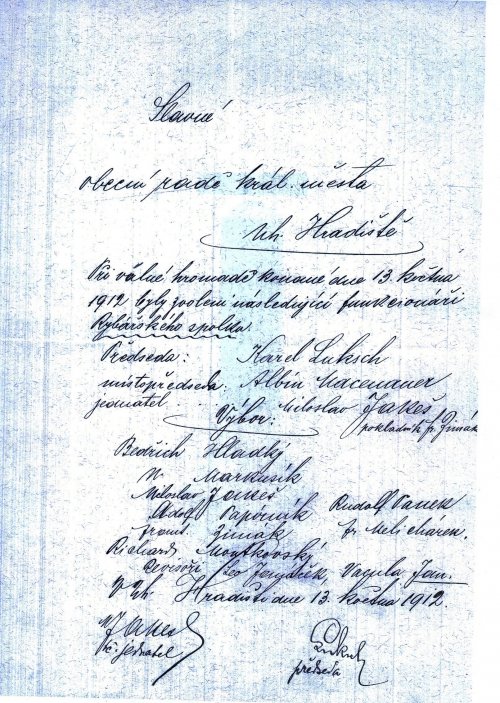 Slavné
obecní radě král. města
Uh. Hradiště
Při valné hromadě konané dne 13. května
1912 byly zvoleni následující funkcionáři
Rybářského spolku.
Předseda: Karel Luksch
místopředseda: Albin Macenauer
jednatel Miloslav Janeš
pokladník fr. Zimák
Výbor:
Bedřich Hladký
Markusík
Miloslav Janeš Rudolf Vanek
Adolf Papírník fr. Melichárek.
frant. Zimák
Richard
revisoři Leo Vacula Jan.
V Uh. Hradišti dne 13. května 1912.
MJaneš Luksch
t. č. jednatel předseda